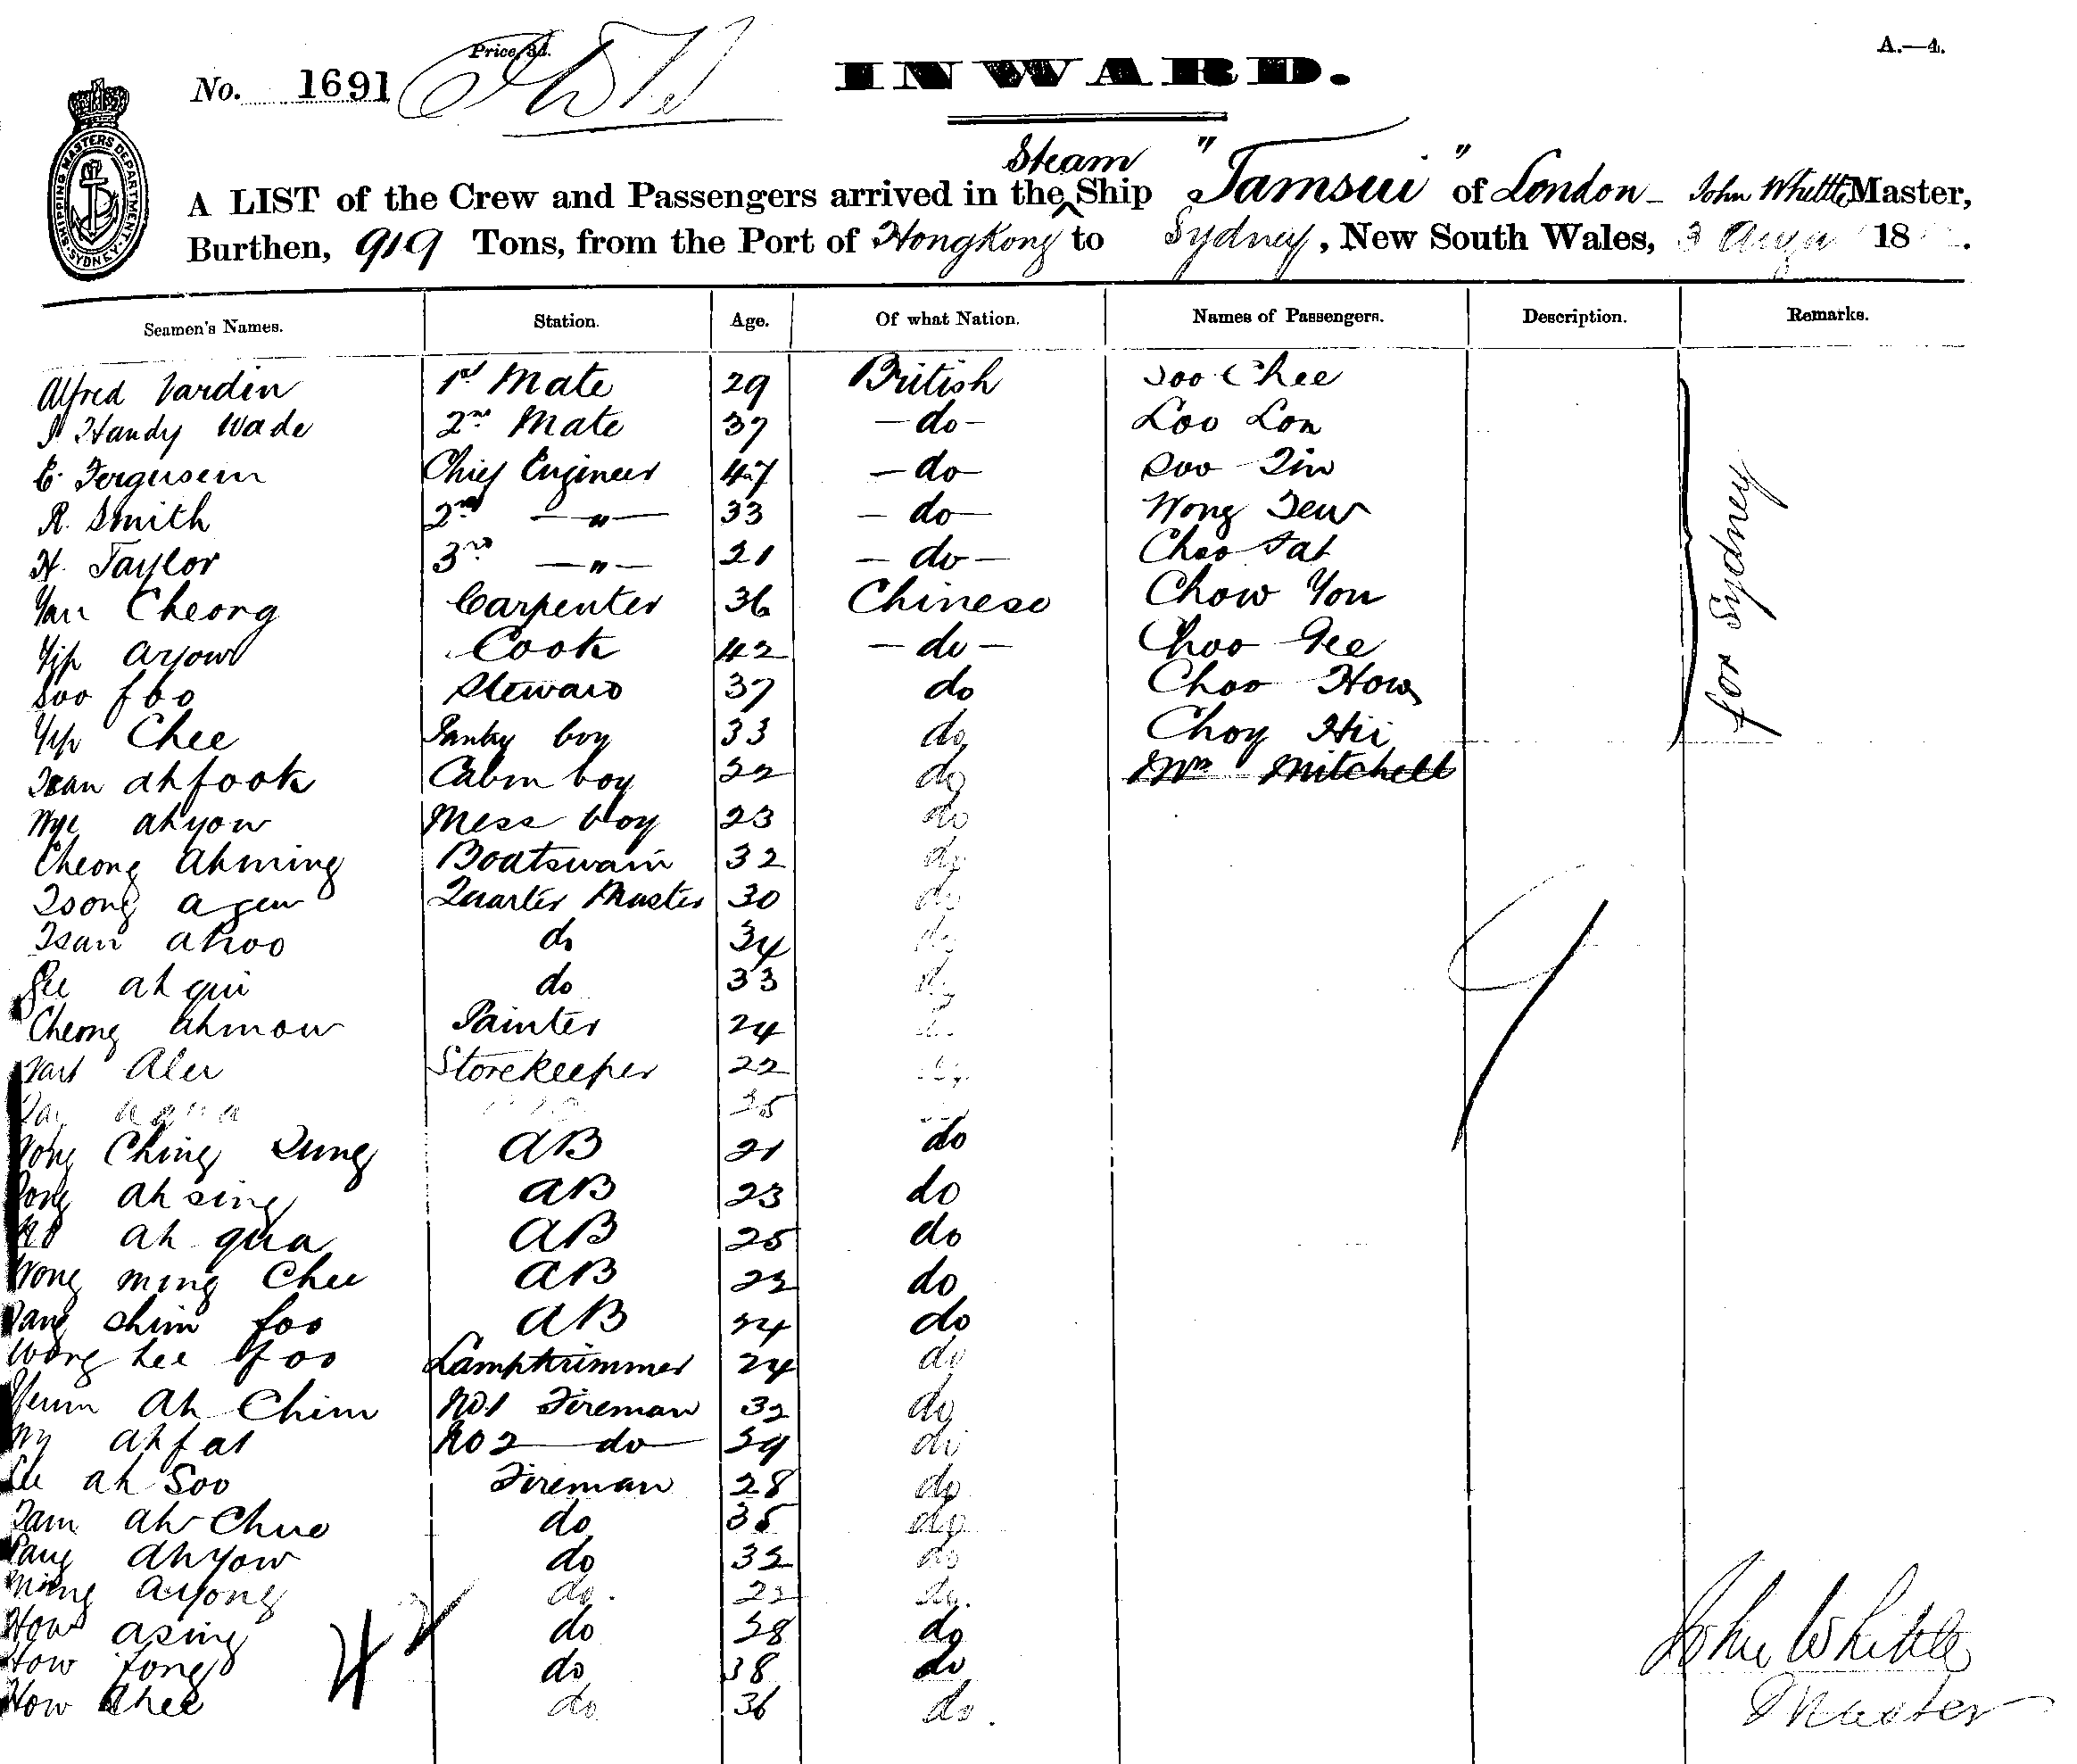 Price, 3d.
A.—4.
No. 1691
INWARD.
SHIPPING MASTERS DEPARTMENT. SYDNEY.
Steam
A LIST of the Crew and Passengers arrived in the ^ Ship "Tamsui" of London - John Whittle Master,
Burthen, 919 Tons, from the Port of HongKong to Sydney, New South Wales, 3 Augu 18 .
Seamen's Names. Station. Age. Of what Nation. Names of Passengers. Description. Remarks.
Alfred Vardin 1st Mate 29 British Soo Chee
Handy Wade 2nd Mate 37 - do - Loo Lon
E. Ferguson Chief Engineer 47 - do -
R. Smith 2nd — " — 33 - do - Wong Tew
H. Taylor 3rd — " — 21 - do - Choo Fat
Yan Cheong Carpenter 36 Chinese Chow You
Yip ayow Cook 42 - do - Choo Gee
Soo foo Steward 37 do Choo How
Yip Chee Pantry boy 33 do Choy Hii
Tsan ahfook Cabin boy 22 do Wm Mitchell
Nye ahyow Mess boy 23 do
Cheong ahming Boatswain 32 do
Tsong Quarter Master 30 do
Tsan ahoo do 34 do
ah qui do 33 do
Cheong ahmow Painter 24
Storekeeper 22
35
Wong Ching Dung AB 21 do
ah sing AB 23 do
ah qua AB 25 do
Wong ming Chee AB 22 do
shim foo AB 24 do
Wong Lee foo Lamptrimmer 24 do
ah Chim No.1 Fireman 32 do
Ny ahfat No 2 — do — 39 do
Lee ah Soo Fireman 28 do
Tam ah Chue do 35 do
Pang ahyow do 32 do
Ming ayong do. 22 do.
How asing do 28 do
How fong do 38 do
How Chee do 36 do.
for Sydney
42
John Whittle
Master